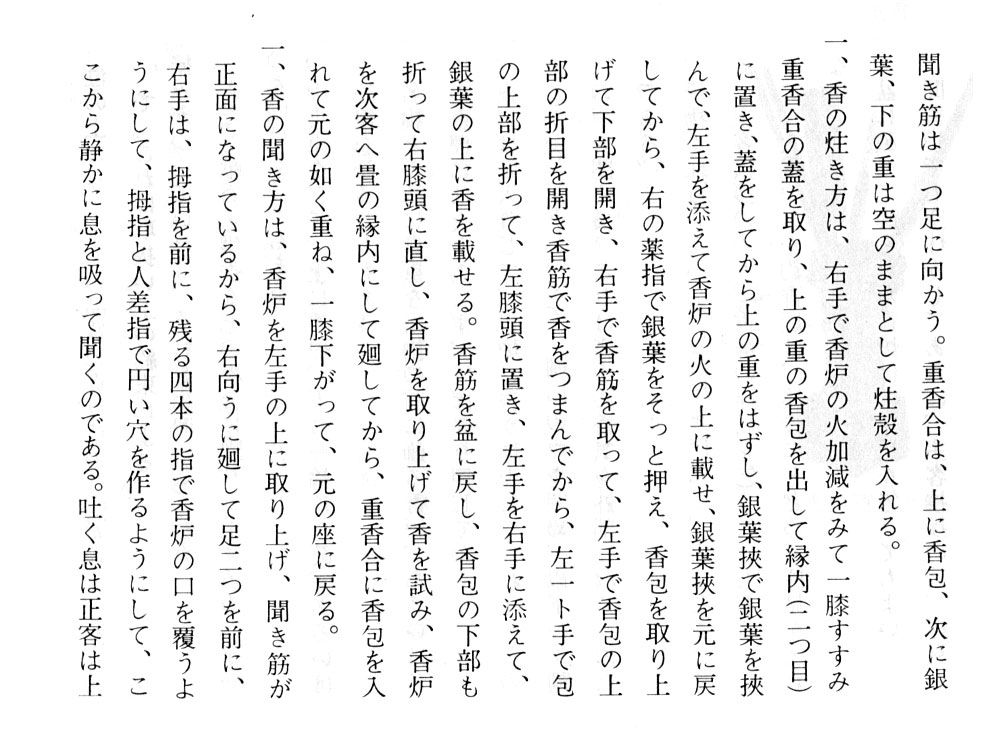 聞き筋は一つ足に向かう。重香合は、上に香包、次に銀
葉、下の重は空のままとして炷殻を入れる。
一、香の炷き方は、右手で香炉の火加減をみて一膝すすみ
重香合の蓋を取り、上の重の香包を出して縁内(二つ目)
に置き、蓋をしてから上の重をはずし、銀葉挾で銀葉を挾
んで、左手を添えて香炉の火の上に載せ、銀葉挾を元に戻
してから、右の薬指で銀葉をそっと押え、香包を取り上
げて下部を開き、右手で香筋を取って、左手で香包の上
部の折目を開き香筋で香をつまんでから、左一ト手で包
の上部を折って、左膝頭に置き、左手を右手に添えて、
銀葉の上に香を載せる。香筋を盆に戻し、香包の下部も
折って右膝頭に直し、香炉を取り上げて香を試み、香炉
を次客へ畳の縁内にして廻してから、重香合に香包を入
れて元の如く重ね、一膝下がって、元の座に戻る。
一、香の聞き方は、香炉を左手の上に取り上げ、聞き筋が
正面になっているから、右向うに廻して足二つを前に、
右手は、拇指を前に、残る四本の指で香炉の口を覆うよ
うにして、拇指と人差指で円い穴を作るようにして、こ
こから静かに息を吸って聞くのである。吐く息は正客は上